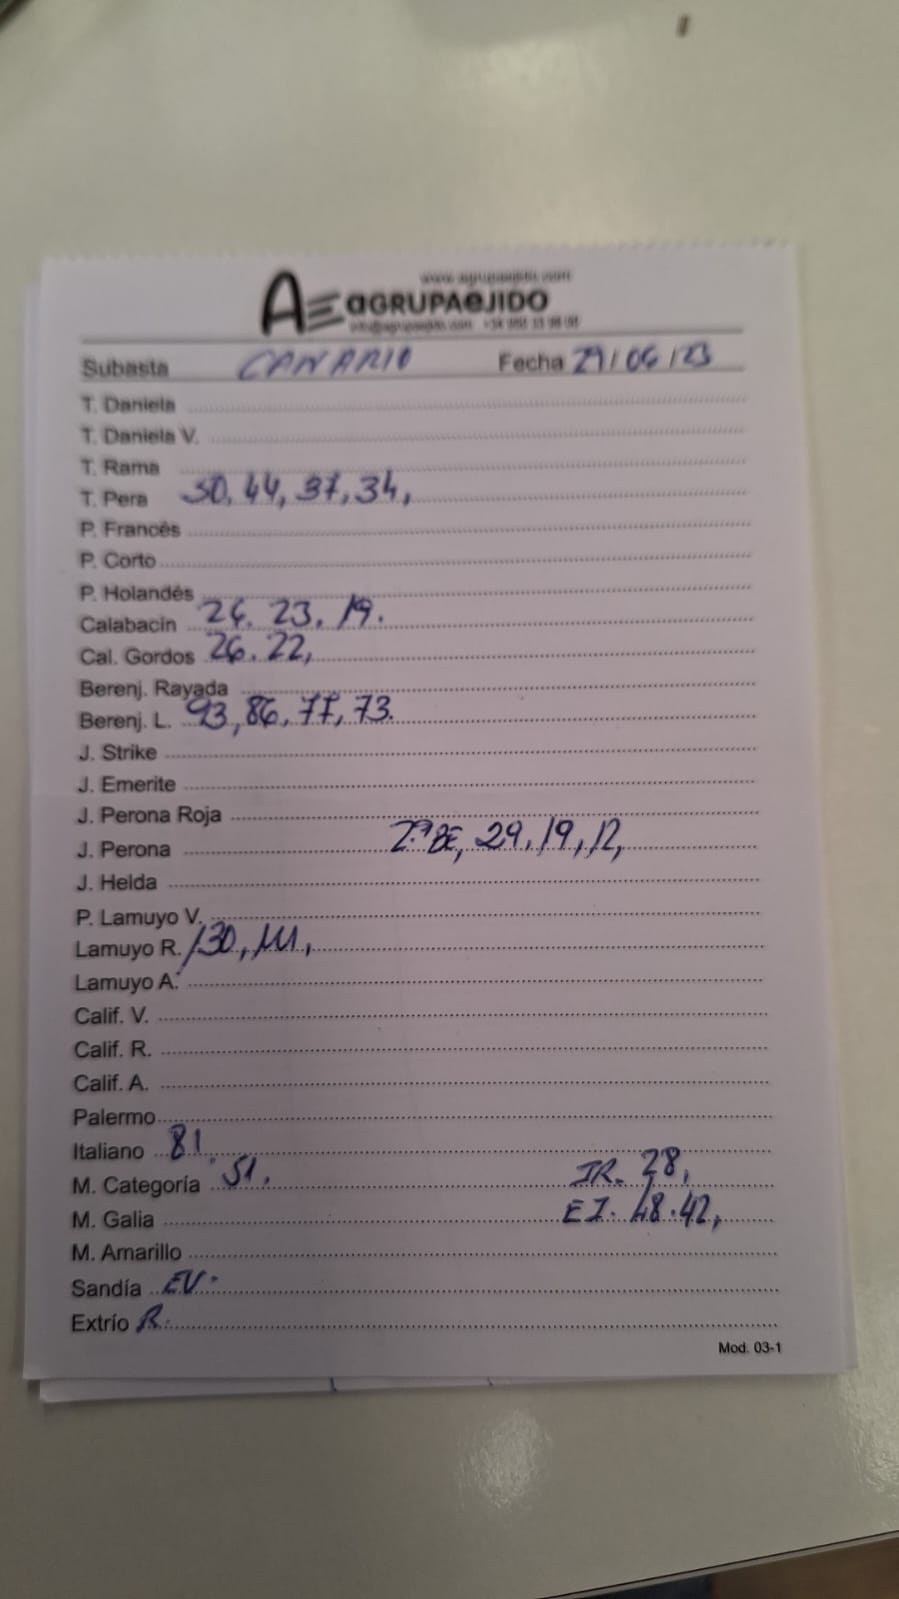 www.agrupaejido.com
AGRUPAEJIDO
Subasta CANARIO Fecha 29/06/23
T. Daniela
T. Daniela V.
T. Rama
T. Pera 50, 44, 37, 34,
P. Francés
P. Corto
P. Holandés
Calabacín 26. 23. 19.
Cal. Gordos 26. 22,
Berenj. Rayada
Berenj. L. 93, 86, 77, 73.
J. Strike
J. Emerite
J. Perona Roja
J. Perona 2.ª BE, 29, 19, 12,
J. Helda
P. Lamuyo V.
Lamuyo R. 130, 111,
Lamuyo A.
Calif. V.
Calif. R.
Calif. A.
Palermo
Italiano 81.
M. Categoría 51. IR. 28,
M. Galia EI. 48. 42,
M. Amarillo
Sandía EV.
Extrío R.
Mod. 03-1